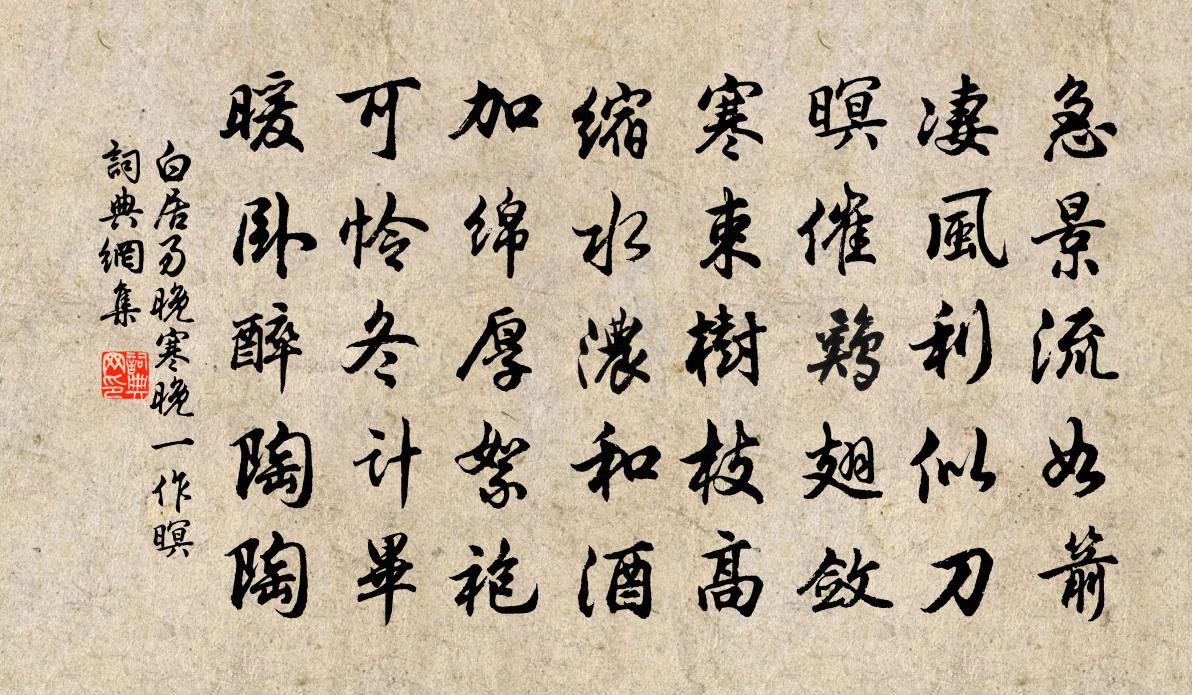 急景流如箭
淒風利似刀
暝催鷄翅斂
寒束樹枝高
縮水濃和酒
加綿厚絮袍
可怜冬計畢
暖卧醉陶陶
白居易晚寒晚一作暝
詞典網集
詞典
网印